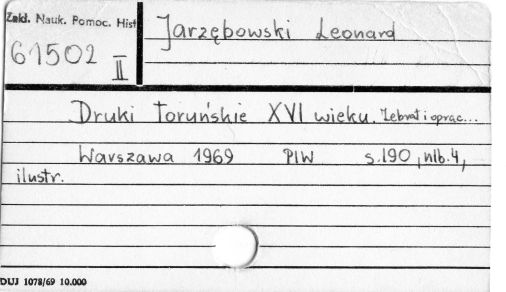 Zakł. Nauk. Pomoc. Hist
61502
II
Jarzębowski Leonard
Druki toruńskie XVI wieku. Zebrał i oprac...
Warszawa 1969 PIW s.190, nlb.4,
ilustr.
DUJ 1078/69 10.000